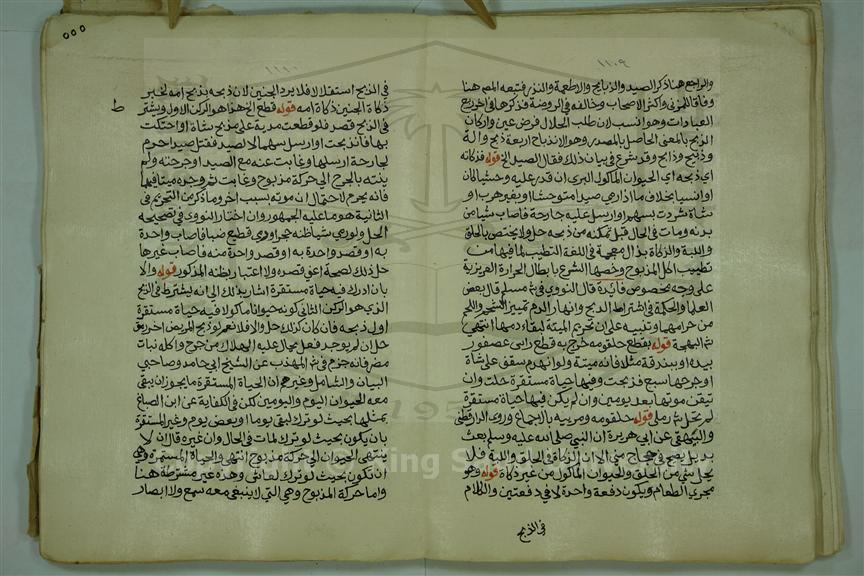 ١١٠٩
والراجع هنا ذكر الصيد والذبايح والاطعمة والنذر فتبعه المص هنا
وفاقا للمزني واكثر الاصحاب وخالفه في الروضة فذكرها في اخر ربع
العبادات وهو انسب لان طلب الحلال فرض عين واركان
الذبح بالمعنى الحاصل بالمصدر وهو الانذباح اربعة ذبح والة
وذبيح وذابح وقد شرع في بيان ذلك فقال الصيد الخ قوله فذكاته
اي ذبحه اي الحيوان الماكول البري ان قدر عليه وحشيا كان
او انسيا بخلاف ما اذا رمي صيدا متوحشا او بعير هرب او
شاة شردت بسهم او ارسل عليه جارحة فاصاب شيا من
بدنه ومات في الحال قبل تمكنه من ذبحه حل ولا يختص بالحلق
واللبة والذكاة بذال معجمة في اللغة التطييب لما فيها من
تطييب اكل المذبوح وخصها الشرع بابطال الحرارة الغريزية
على وجه مخصوص فايدة قال النووي في مسلم قال بعض
العلما والحكمة في اشتراط الذبح وانهار الدم تمييز الشحم واللحم
من حرامهما وتنبيه على ان تحريم الميتة لبقا دمها انتهى
شر البهجة قوله بقطع حلقومه خرج به قطع راس عصفور
بيده او ببندقة مثلا فانه ميتة ولو انهدم سقف على شاة
او جرحها سبع فذبحت وفيها حياة مستقرة حلت وان
تيقن موتها بعد يومين وان لم يكن فيها حياة مستقرة
لم تحل شر رملي قوله حلقومه ومريه بالاجماع وروى الدارقطني
والبيهقي عن ابي هريرة ان النبي صلى الله عليه وسلم بعث
بديل يصيح في فجاج منى الا ان الذكاة في الحلق واللبة فلا
يحل شي من الحلق والحيوان الماكول من غير ذكاة قوله وهو
مجرى الطعام ويكون دفعة واحدة لا في دفعتين والكلام
في الذبح
٥٥٥
١١١٠
في الذبح استقلالا فلا يرد الجنين لان ذبحه بذبح امه لخبر
ذكاة الجنين ذكاة امه قوله قطع الخ هذا هو الركن الاول ويشتر
ط
في الذبح قصد فلو قطعت مدية على مذبح شاة او احتكت
بها فانذبحت او ارسل سهما لا لصيد فقتل صيدا حرم
لجارحة ارسلها وغابت عنه مع الصيد او جرحته ولم
ينته بالجرح الى حركة مذبوح وغابت ثم وجده ميتا فيهما
فانه يحرم لاحتمال ان موته بسبب اخر وما ذكر من التحريم في
الثانية هو ما عليه الجمهور وان اختار النووي في تصحيحه
الحل ولو رمى شيا ظنه حجرا او رمى قطيع ضبا فاصاب واحدة
به او قصد واحدة به او قصد واحدة منه فاصاب غيرها
حل ذلك لصحة اعني قصده ولا اعتبار بظنه المذكور قوله والا
بان ادرك فيه حياة مستقرة اشار بذلك الى انه يشترط في الذبح
الذي هو الركن الثاني كونه حيوانا ماكولا فيه حياة مستقرة
اول ذبحه فان كان كذلك حل والا فلا نعم لو ذبح المريض اخر رمق
حل ان لم يوجد فعل يحال عليه الهلاك من جرح واكله نبات
مضر فانه جزم في شر المهذب عن الشيخ ابي حامد وصاحبي
البيان والشامل وغيرهم ان الحياة المستقرة ما يجوز ان يبقى
معه الحيوان اليوم واليومين لكن في الكفاية عن ابن الصباغ
يمثلها بحيث لو ترك لبقي يوما او بعض يوم وغير المستقرة
بان يكون بحيث لو ترك لمات في الحال وان غيره قال ان لا
ينتهي الحيوان الى حركة مذبوح انتهى والحياة المستمرة وهي
ان تكون بحيث لو ترك لعاش وهذه غير مشترطة هنا
واما حركة المذبوح وهي التي لا ينبغي معه سمع ولا ابصار